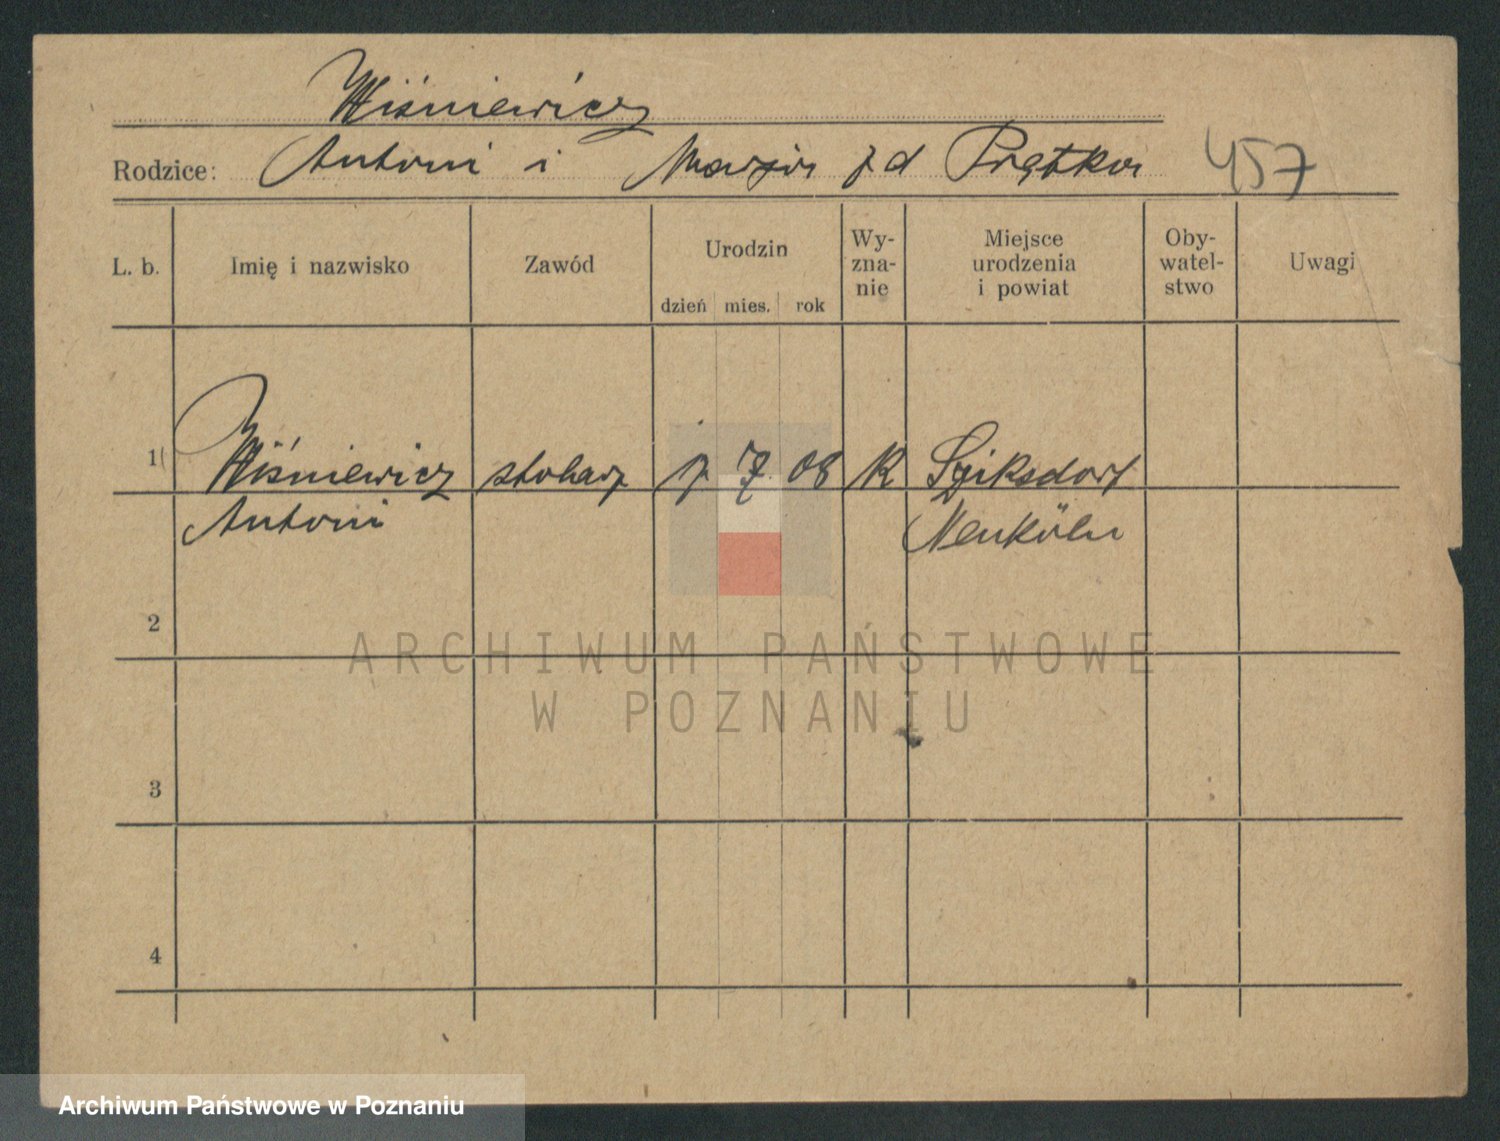 Wiśniewicz
Rodzice: Antoni i Marja z d Prętka 457
L. b. Imię i nazwisko Zawód Urodzin dzień mies. rok Wy-zna-nie Miejsce urodzenia i powiat Oby-watel-stwo Uwagi
1 Wiśniewicz stolarz 7 08 K
Antoni Neuköln
2
ARCHIWUM PAŃSTWOWE
W POZNANIU
3
4
Archiwum Państwowe w Poznaniu